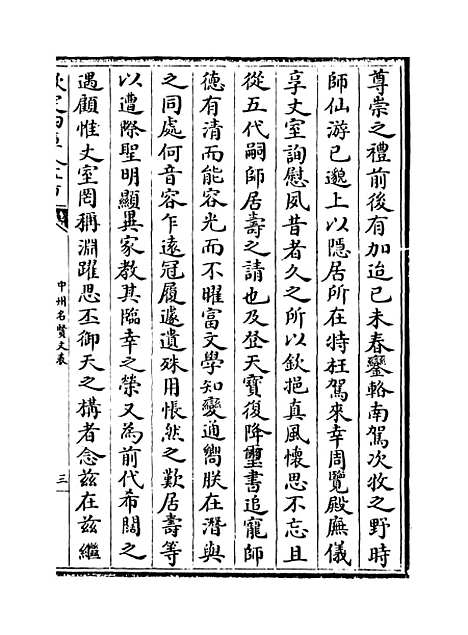 尊崇之禮前後有加迨己未春鑾輅南駕次牧之野時
師仙游已邈上以隱居所在特枉駕來幸周覽殿廡儀
享丈室詢慰夙昔者久之所以欽挹真風懷思不忘且
從五代嗣師居壽之請也及登天寶復降璽書追寵師
德有清而能容光而不曜富文學知變通嚮朕在潛與
之同處何音容乍遠冠履遽遺殊用悵然之歎居壽等
以遭際聖明顯異家教其臨幸之榮又為前代希闊之
遇顧惟丈室罔稱淵躍思丕御天之構者念茲在茲繼
中州名賢文表
三